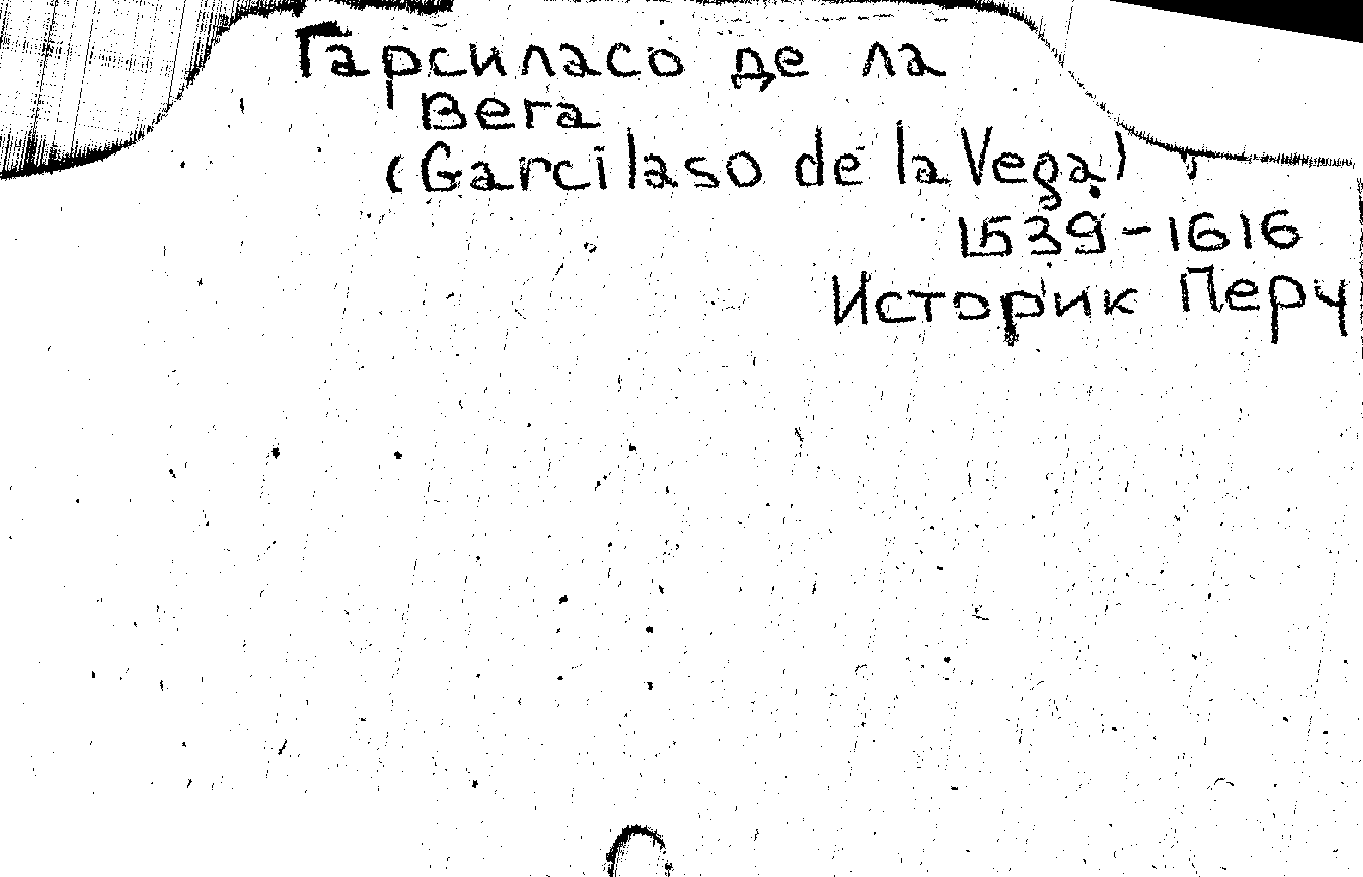 Гарсиласо де ла
Вега
(Garcilaso de la Vega)
1539-1616
Историк Перу